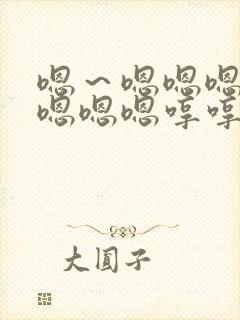 嗯～嗯嗯嗯
嗯嗯嗯哼哼
大圆子